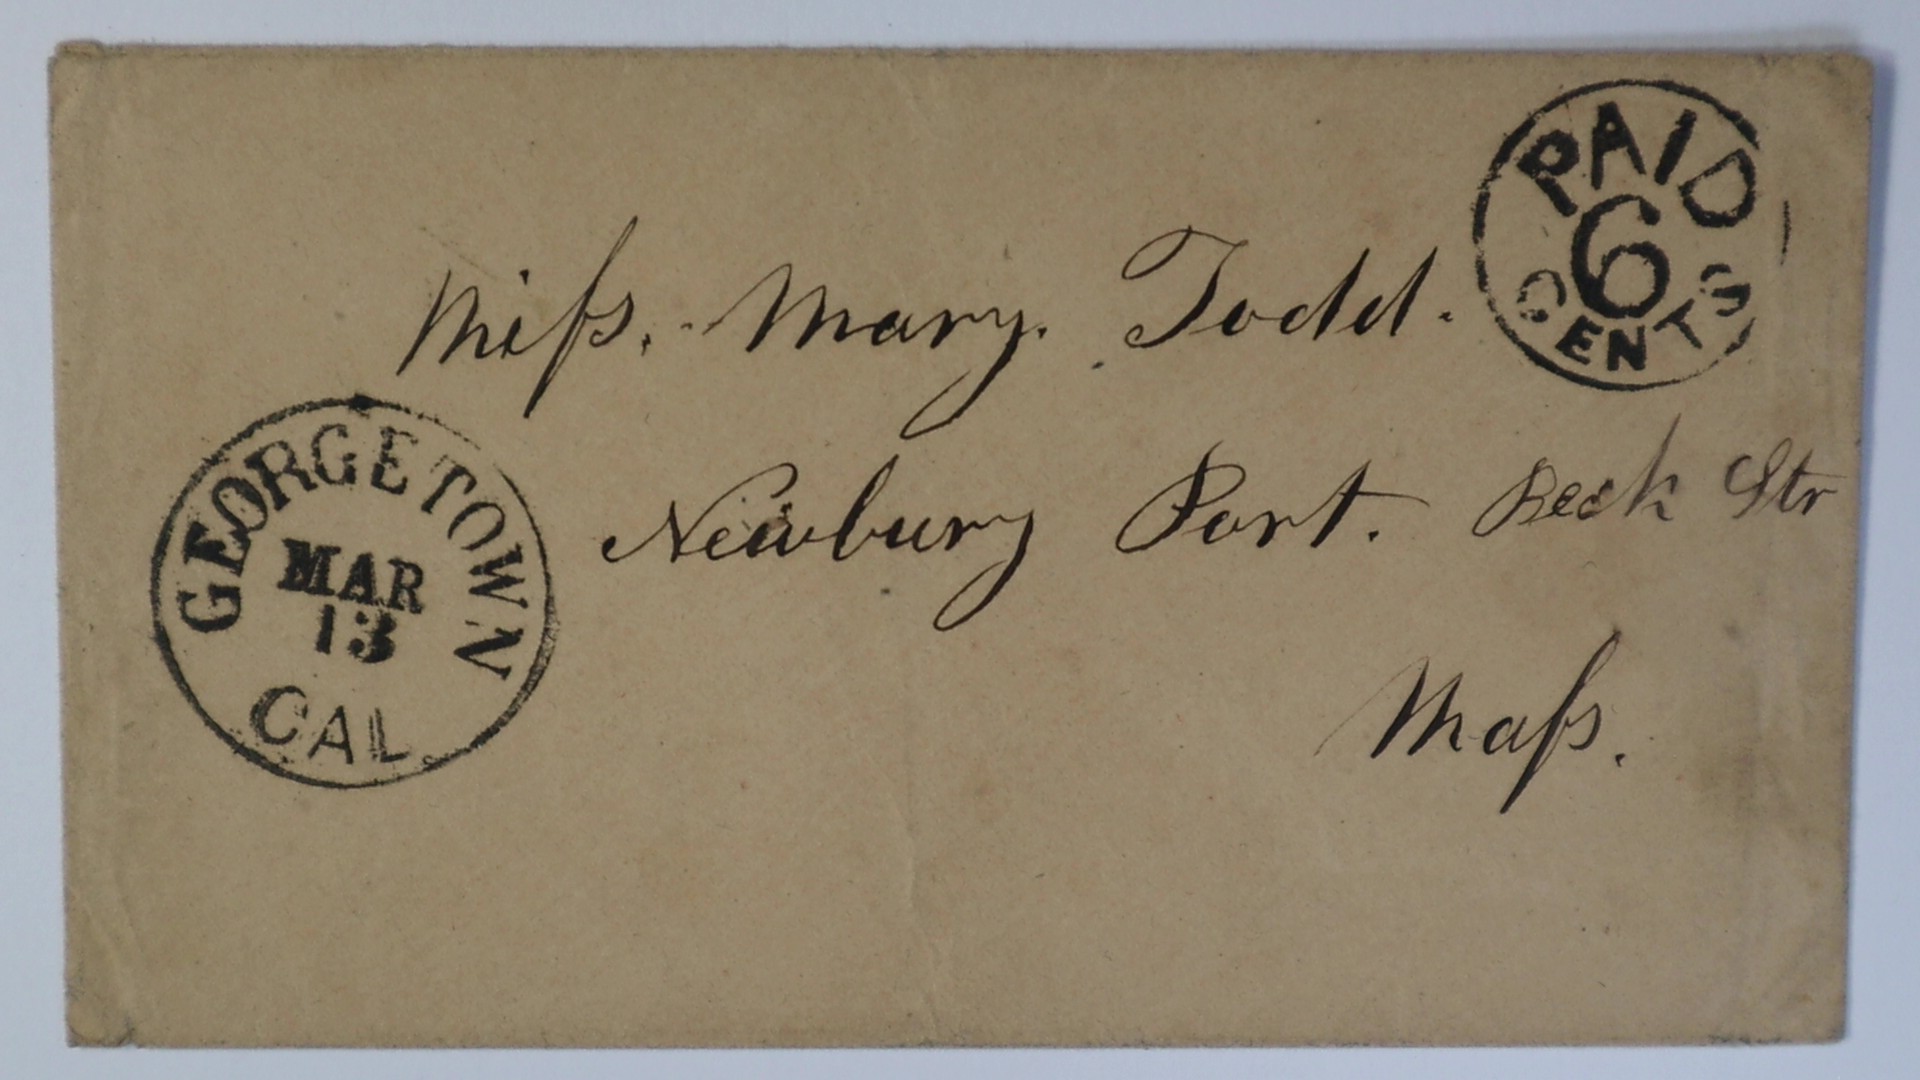 PAID
6
CENTS
Miss. Mary. Todd.
Newbury Port. Beck Str
Mass.
GEORGETOWN
MAR
13
CAL.